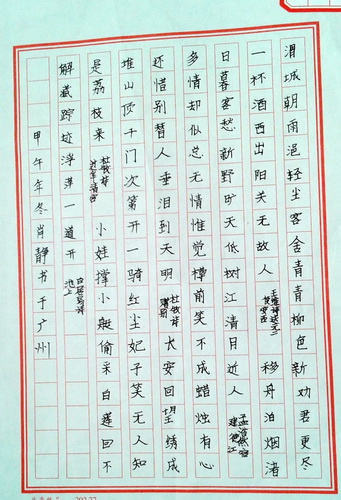 渭城朝雨浥轻尘客舍青青柳色新劝君更尽
一杯酒西出阳关无故人 王维诗送元二使安西 移舟泊烟渚
日暮客愁新野旷天低树江清月近人 孟浩然宿建德江
多情却似总无情惟觉樽前笑不成蜡烛有心
还惜别替人垂泪到天明 杜牧诗赠别 长安回望绣成
堆山顶千门次第开一骑红尘妃子笑无人知
是荔枝来 杜牧诗过华清宫 小娃撑小艇偷采白莲回不
解藏踪迹浮萍一道开 白居易诗池上
甲午年冬肖静书于广州